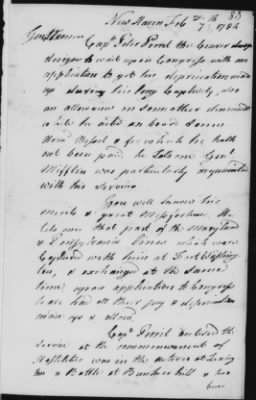 New Haven Feb 7. 1784
83
Gentlemen
Capt. Peter Perrit the bearer
designs to wait upon Congress with an
application to get his depreciation made
up during his long Captivity, also
an allowance in some other
while he acted on board some
Armd Vessel & for which he hath
not been paid, he tells me Genl
Mifflin was particularly acquainted
with his service
You will know his
merits & great Misfortune. He
tells me that part of the Maryland
& Pensylvania lines which were
Captured with him at Fort Washing
ton, & exchanged at the same
time upon application to Congress
have had all their pay & depreciation
made up & allowd.
Capt Perrit entered the
service at the commencement of
Hostilities was in the action at Lexing
ton & Battle at Bunker hill & has
been